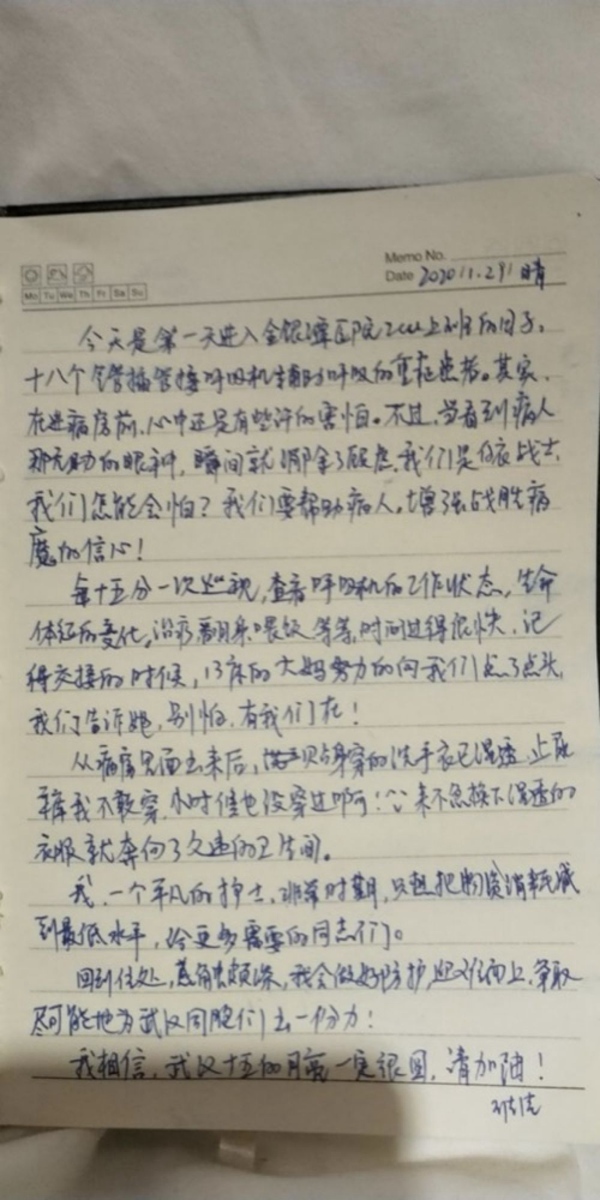 Memo No.
Mo Tu We Th Fr Sa Su
Date 2020/1.29/ 晴
今天是第一天进入金银潭医院ICU上班的日子,
十八个管插管接呼吸机辅助呼吸的重症患者。其实,
在进病房前,心中还是有些许的害怕。不过,当看到病人
那无助的眼神,瞬间就消除了顾虑,我们是白衣战士,
我们怎能会怕?我们要帮助病人,增强战胜病
魔的信心!
每十五分一次巡视,查看呼吸机的工作状态,生命
体征的变化,治疗翻身喂饭等等,时间过得很快,记
得交接的时候,13床的大妈努力的向我们点了点头,
我们告诉她,别怕,有我们在!
从病房里面出来后,贴身穿的洗手衣已湿透,止尿
裤我不敢穿,小时候也没穿过啊!^^ 来不急换下湿透的
衣服就奔向了久违的卫生间。
我,一个平凡的护士,非常时期,只想把物资消耗减
到最低水平,给更多需要的同志们。
回到住处,我会做好防护,迎难而上,争取
尽可能地为武汉同胞们出一份力!
我相信,武汉十五的月亮一定很圆,请加油!